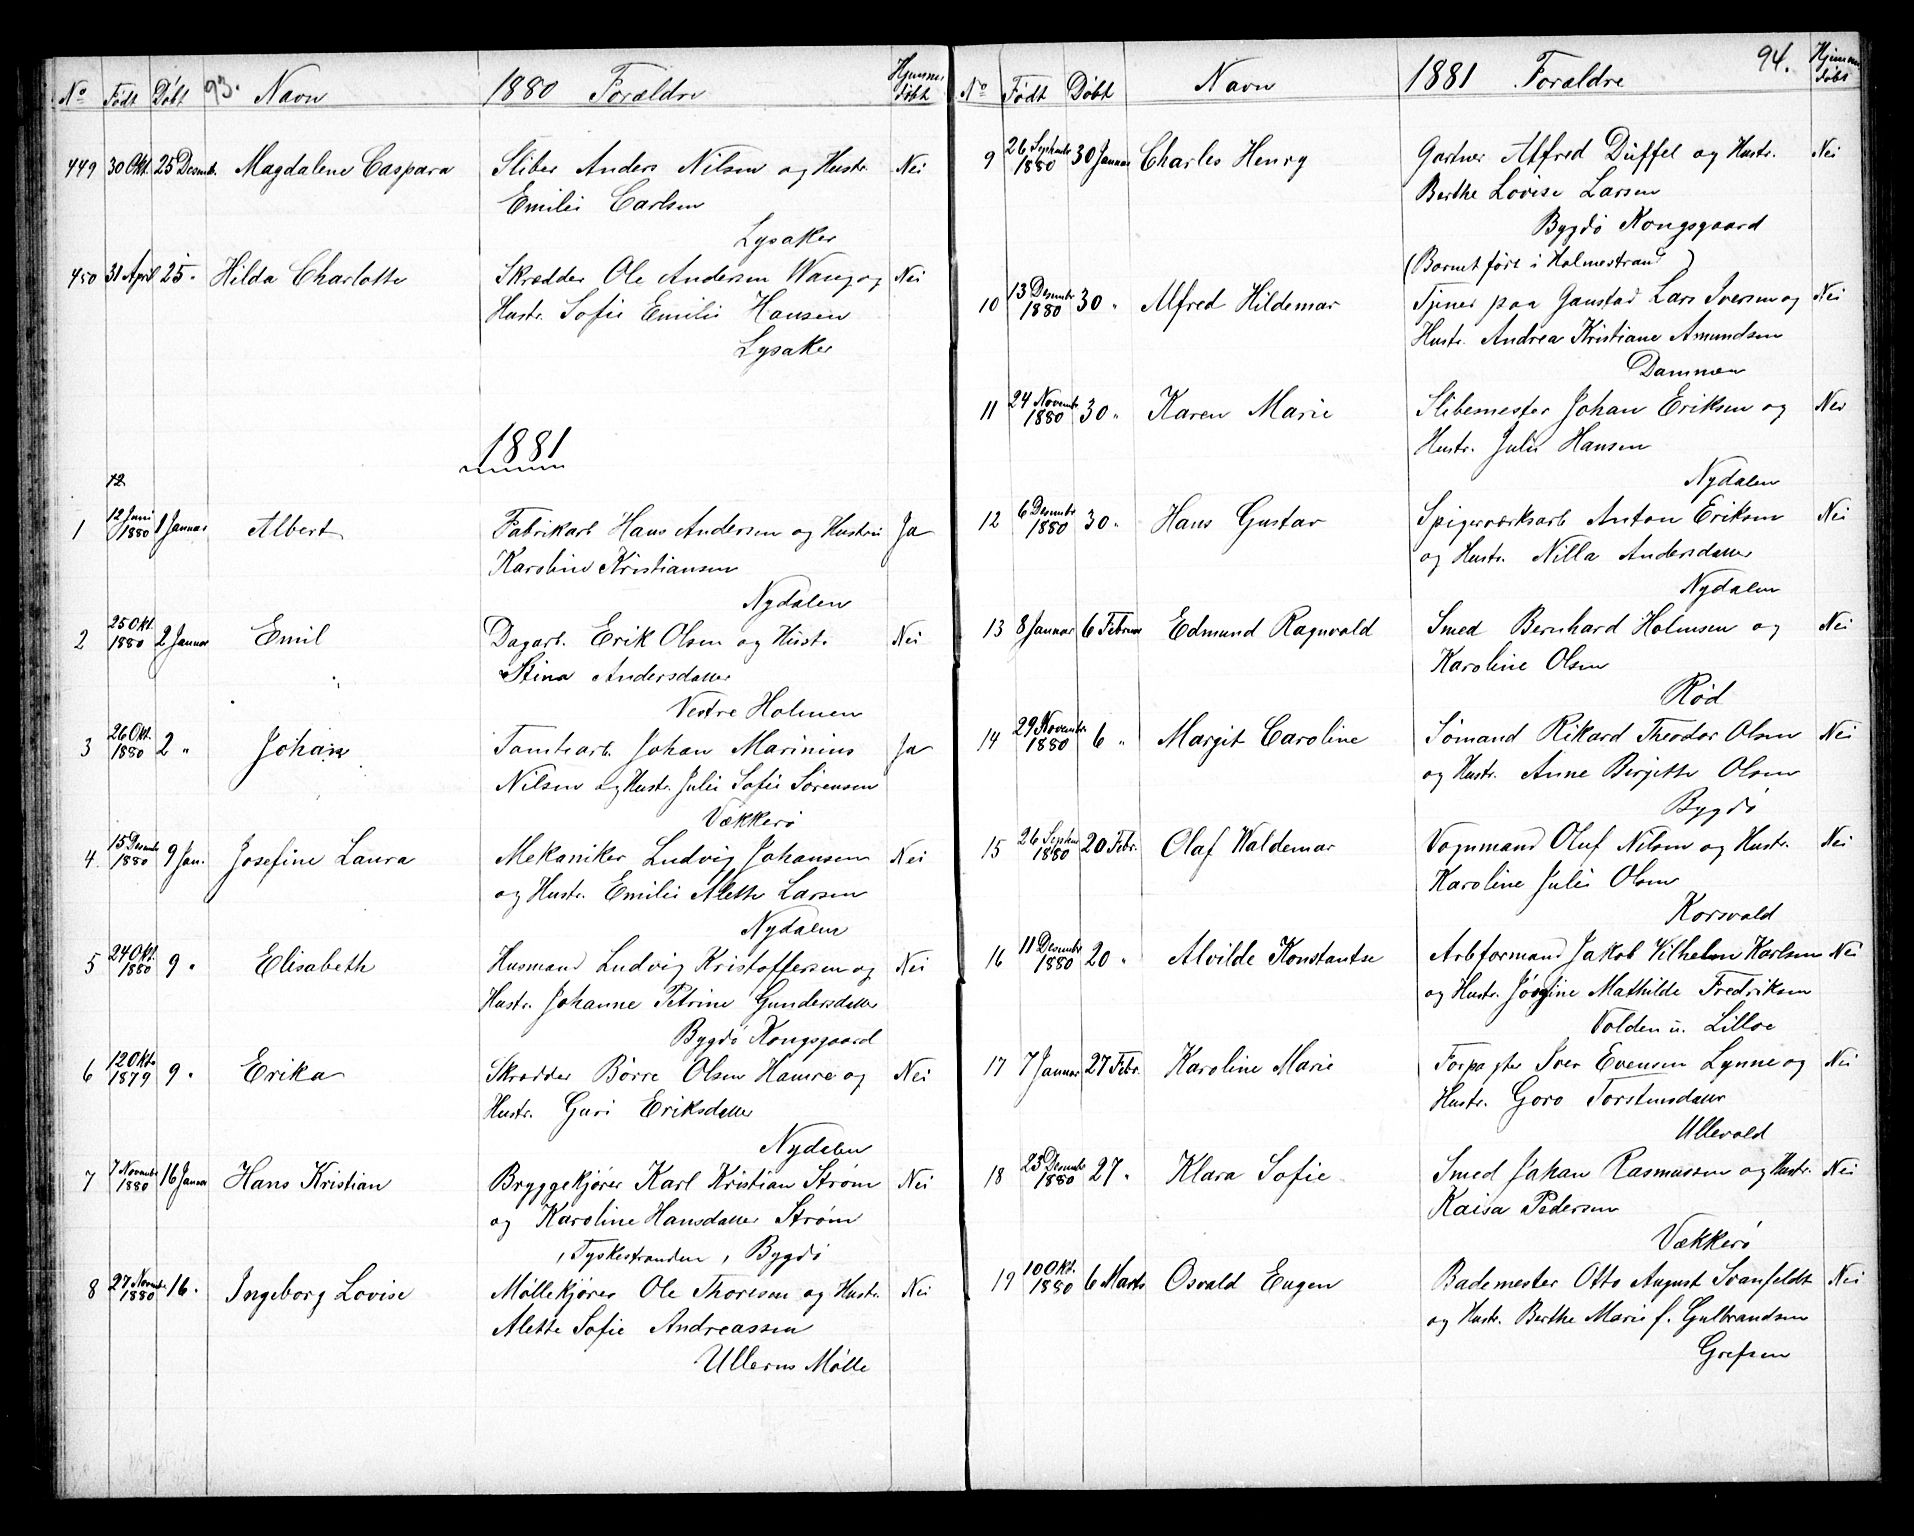 No Født Døbt 93. Navn 1880 Forældre Hjemmedøbt
449 30 Okt. 25 Desemb. Magdalene Caspara Sliber Anders Nilsen og Hustr. Nei
Emilie Carlsen
Lysaker
450 31 April 25 " Hilda Charlotte Skrædder Ole Andersen Wang og Nei
Hustr. Sofie Emilie Hansen
Lysaker
1881
12
1 12 Juni 1880 1 Januar Albert Fabrikarb. Hans Andersen og Hustru Ja
Karoline Kristiansen
Nydalen
2 25 Okt. 1880 2 Januar Emil Dagarb. Erik Olsen og Hustr. Nei
Stina Andersdatter
Vestre Holmen
3 26 Okt. 1880 2 " Johan Tomtearb. Johan Marinius Ja
Nilsen og Hustr. Julie Sofie Sørensen
Vækkerø
4 15 Desemb 1880 9 Jan. Josefine Laura Mekaniker Ludvig Johansen Nei
og Hustr. Emilie Alette Larsen
Nydalen
5 24 Okt. 1880 9 " Elisabeth Husmand Ludvig Kristoffersen og Nei
Hustr. Johanne Petrine Gundersdatter
Bygdø Kongsgaard
6 12 Okt. 1879 9 " Erika Skrædder Børre Olsen Hamre og Nei
Hustr. Guri Eriksdatter
Nydalen
7 7 Novembr 1880 16 Januar Hans Kristian Bryggekjører Karl Kristian Strøm Nei
og Karoline Hansdatter Strøm
Tyskestranden, Bygdø
8 27 Novembr 1880 16 " Ingeborg Lovise Møllekjører Ole Thoresen og Hustr. Nei
Alette Sofie Andreassen
Ullerns Mølle
No Født Døbt Navn 1881 Forældre 94. Hjemmedøbt
9 26 Septembr 1880 30 Januar Charles Henry Gartner Alfred Düffel og Hustr. Nei
Berthe Lovise Larsen
Bygdø Kongsgaard
(Barnet født i Holmestrand)
10 13 Desembr 1880 30 " Alfred Hildemar Tjener paa Gaustad Lars Iversen og Nei
Hustr. Andrea Kristiane Amundsen
Dammen
11 24 Novembr 1880 30 " Karen Marie Slibemester Johan Eriksen og Nei
Hustr. Julie Hansen
Nydalen
12 6 Desembr 1880 30 " Hans Gustav Spigerværksarb Anton Eriksen Nei
og Hustr. Nilla Andersdatter
Nydalen
13 8 Januar 6 Februar Edmund Ragnvald Smed Bernhard Holmsen og Nei
Karoline Olsen
Rød
14 29 Novembr. 1880 6 " Margit Caroline Sømand Rikard Theodor Olsen Nei
og Hustr. Anne Birgitte Olsen
Bygdø
15 26 Septembr 1880 20 Febr. Olaf Waldemar Vognmand Oluf Nilsen og Hustr. Nei
Karoline Julie Olsen
Korsvold
16 11 Desembr 1880 20 " Alvilde Konstantse Arbformand Jakob Vilhelm Karlsen Nei
og Hustr. Jørgine Mathilde Fredriksen
Volden u. Lilloe
17 7 Januar 27 Febr. Karoline Marie Forpagter Iver Evensen Lynne og Nei
Hustr. Goro Torstensdatter
Ullevold
18 23 Desembr 1880 27 " Klara Sofie Smed Johan Rasmussen og Hustr. Nei
Kaisa Pedersen
Vækkerø
19 10 Okt. 1880 6 Marts Osvald Eugen Bademester Otto August Svanfeldt Nei
og Hustr. Berthe Marie f. Gulbrandsen
Grefsen